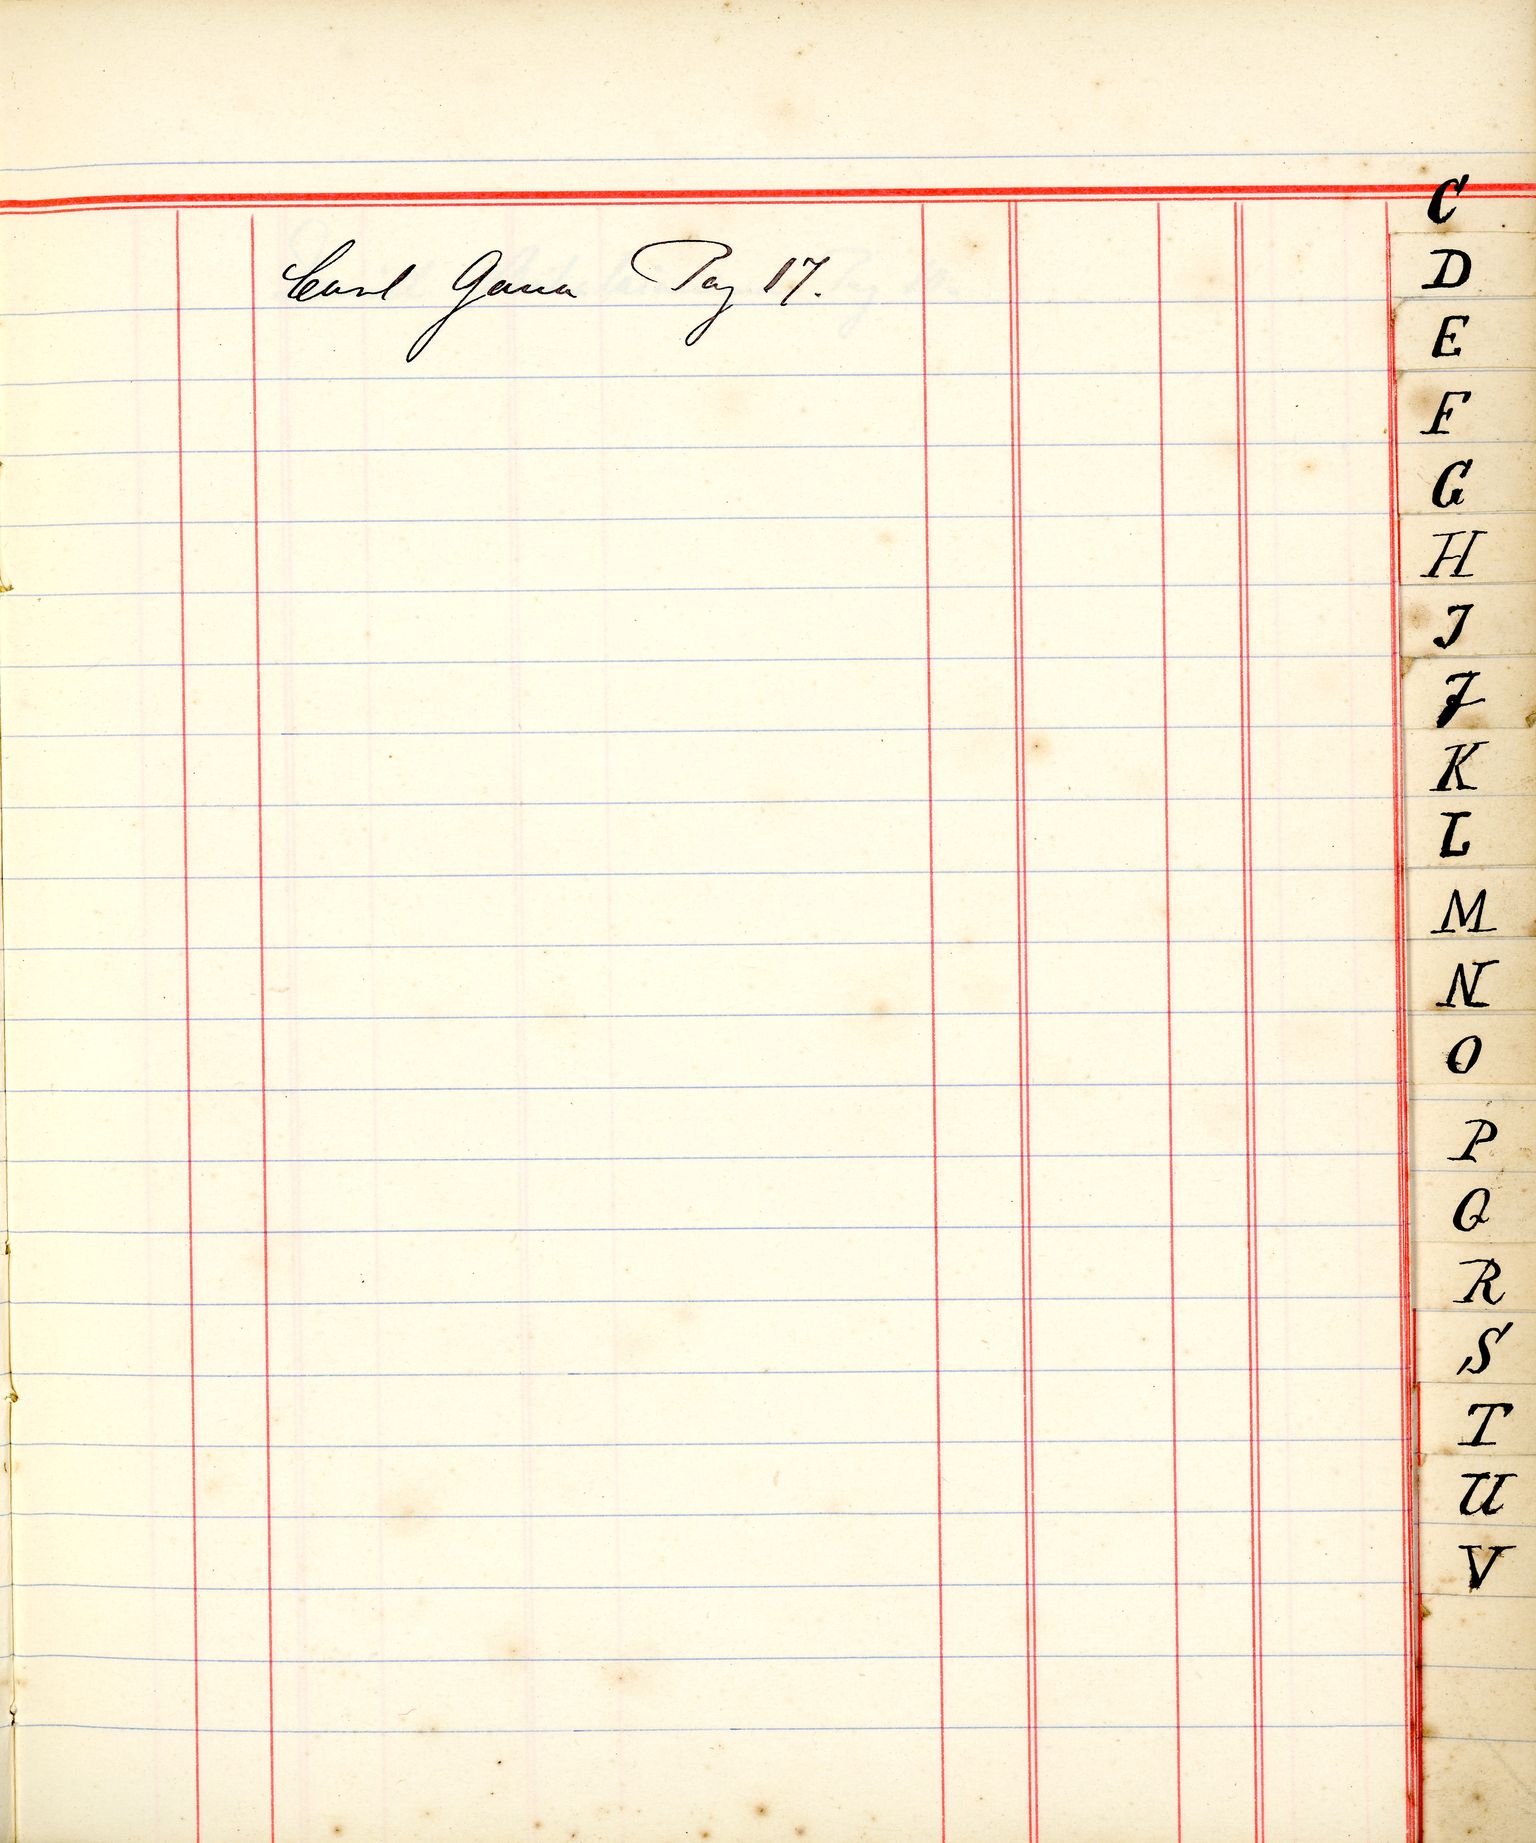 Carl Gana Pag 17.
C
D
E
F
G
H
I
J
K
L
M
N
O
P
Q
R
S
T
U
V